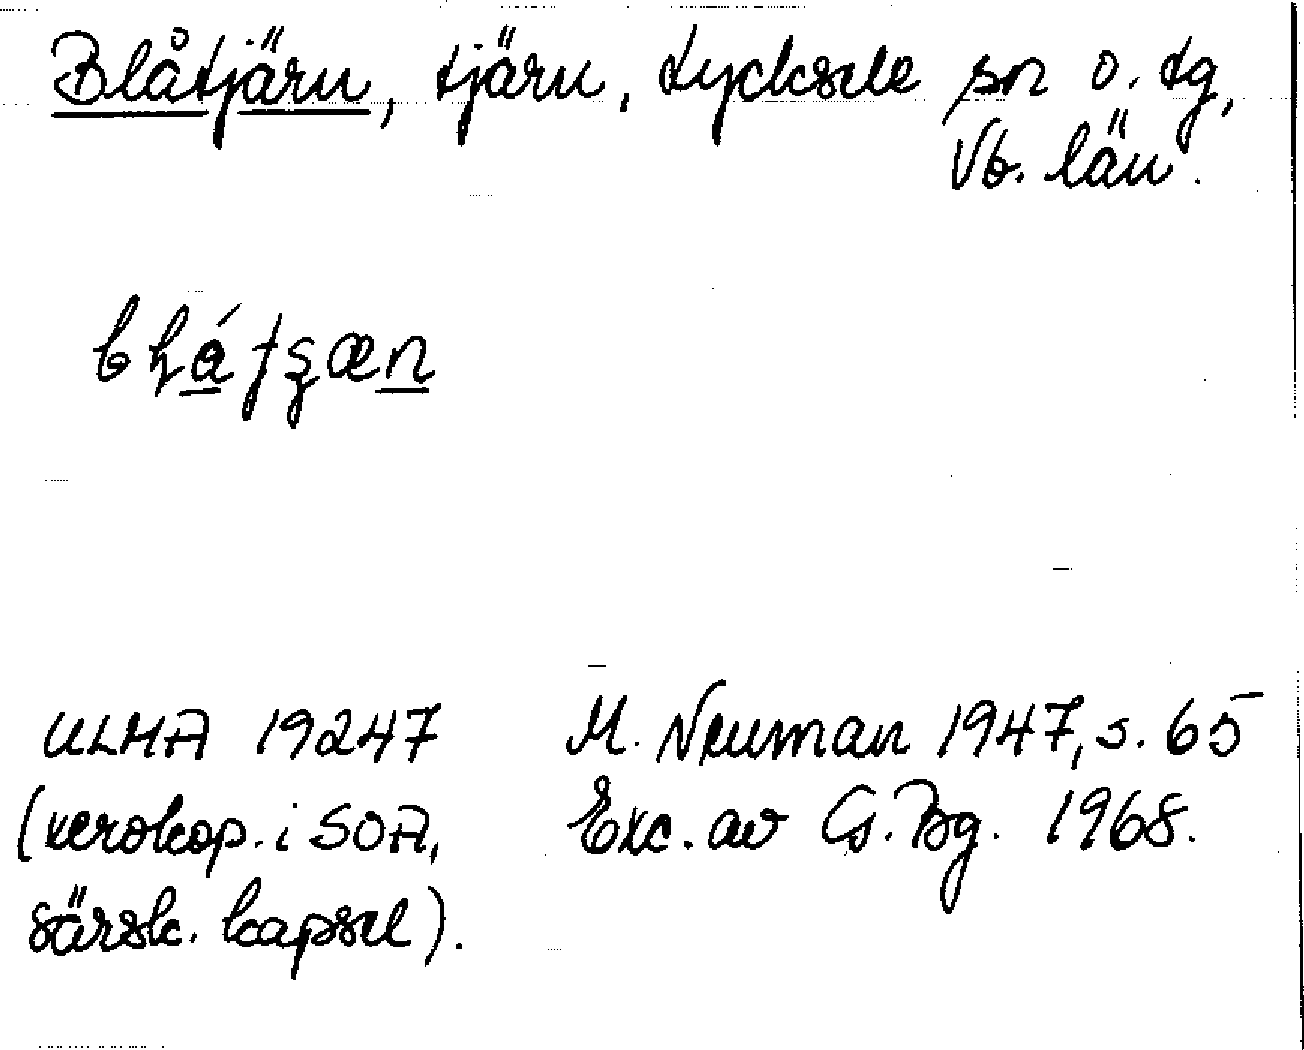 Blåtjärn, tjärn, Lycksele sn o. tg,
Vb. län.
ULMA 19247 M. Neuman 1947, s. 65
(xerokop. i SOA, Exc. av G. Bg. 1968.
särsk. kapsel).